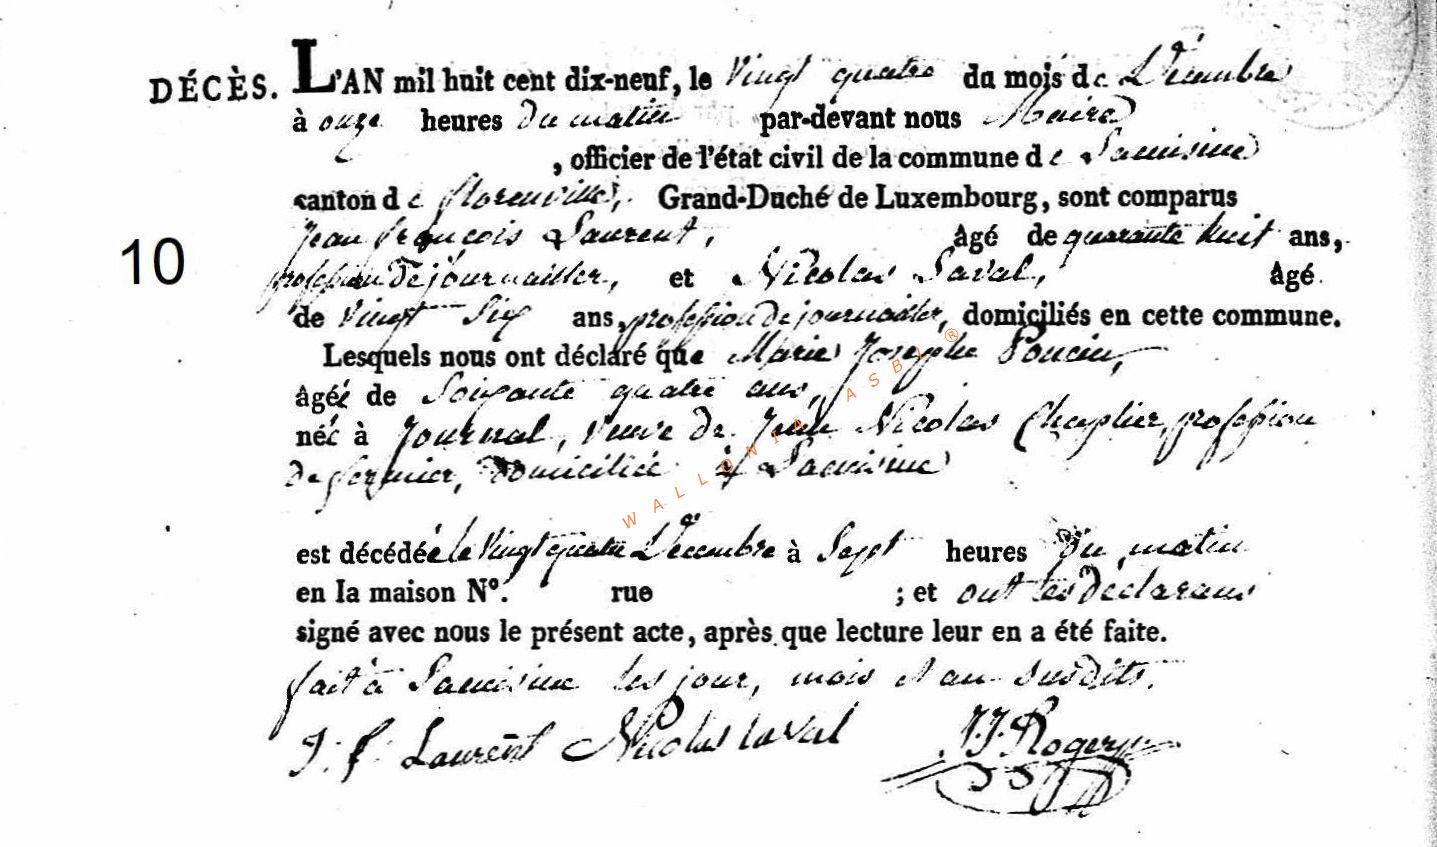 DÉCÈS. L'AN mil huit cent dix-neuf, le Vingt quatre du mois de Décembre
à onze heures du matin par-devant nous Maire
, officier de l'état civil de la commune de Lacuisine
canton de florenville, Grand-Duché de Luxembourg, sont comparus
Jean françois Laurent, âgé de quarante huit ans,
10
profession de journailler, et Nicolas Laval, âgé
de Vingt Six ans, profession de journailler, domiciliés en cette commune.
Lesquels nous ont déclaré que Marie Josephe Poncin,
âgée de Soixante quatre ans,
née à Journal, veuve de Jean Nicolas Cheplier, profession
de fermier, domiciliée à Lacuisine
est décédée le Vingt quatre Décembre à Sept heures du matin
en la maison N°. rue ; et ont les déclarans
signé avec nous le présent acte, après que lecture leur en a été faite.
fait à Lacuisine les jour, mois et an susdits.
J. f. Laurent Nicolas laval J.J. Rogery
WALLONIA ASBL ®